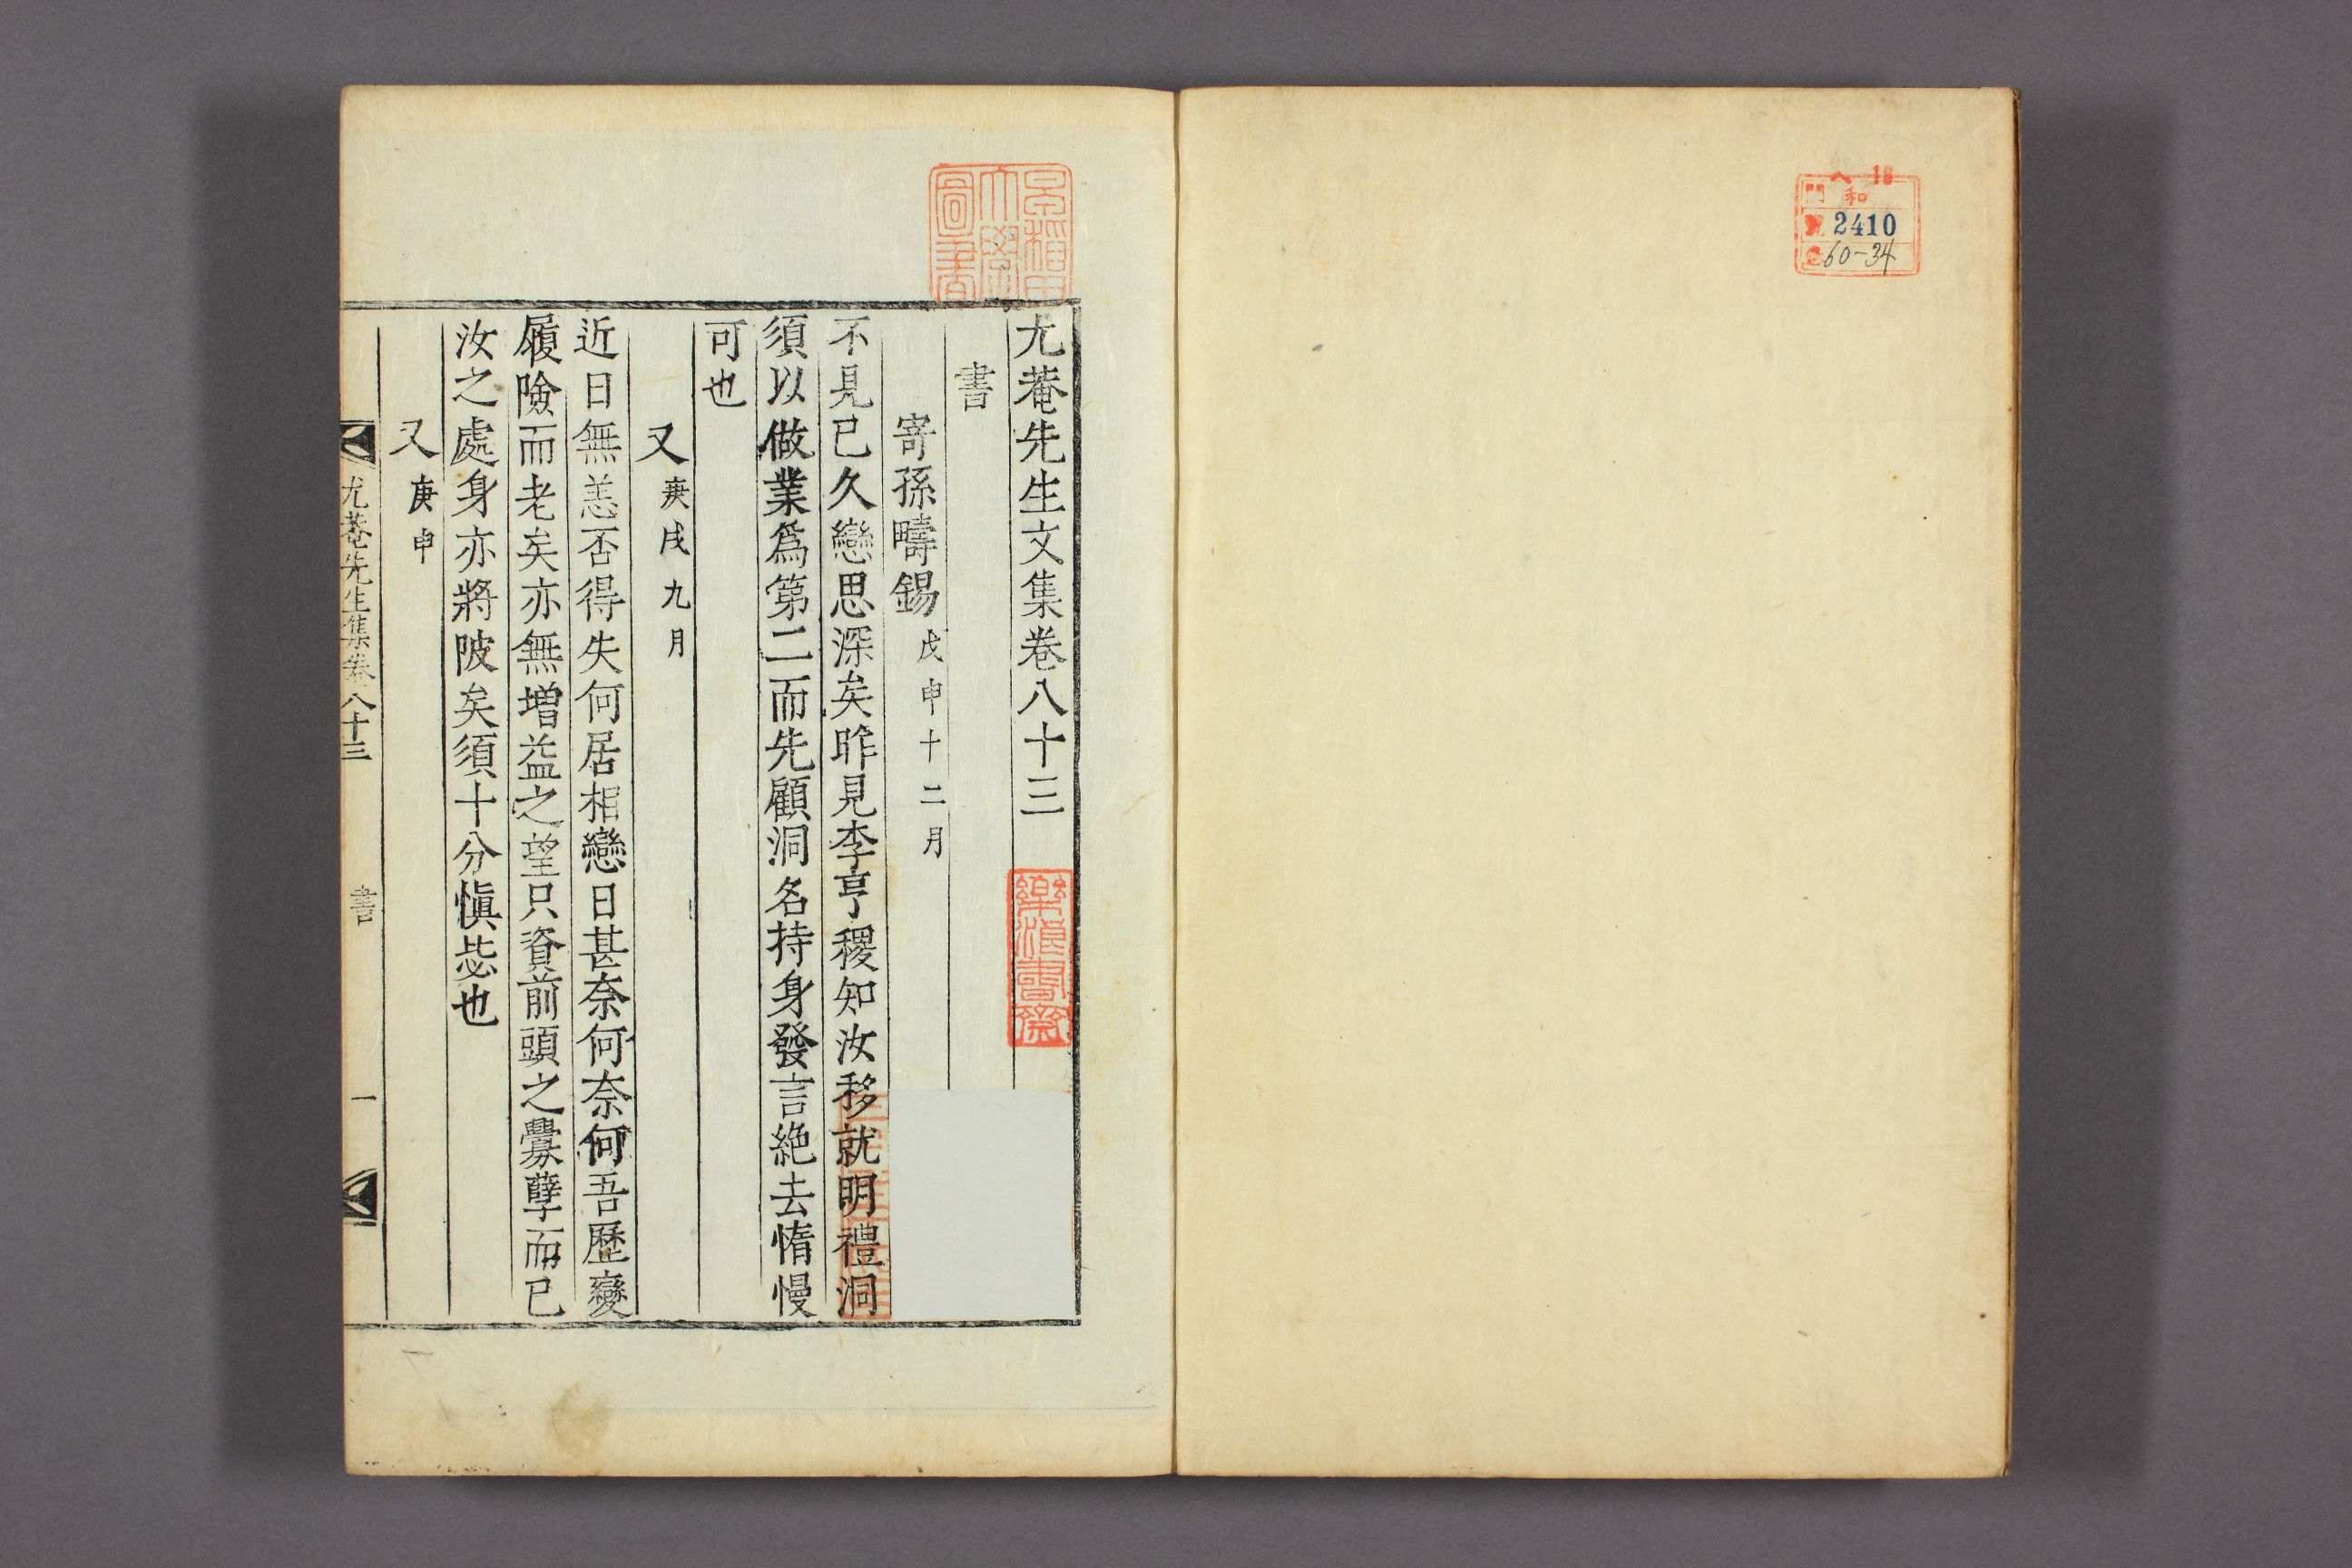 ヘ 18
門 和
號 2410
卷 60-34
早稲田
大學
圖書
尤菴先生文集卷八十三
樂浪書齋
書
寄孫疇錫 戊申十二月
不見已久戀思深矣昨見李亨稷知汝移就明禮洞
須以做業爲第二而先顧洞名持身發言絶去惰慢
可也
又 庚戌九月
近日無恙否得失何居相戀日甚奈何奈何吾歷變
履險而老矣亦無增益之望只資前頭之釁孼而已
汝之處身亦將陂矣須十分愼毖也
又 庚申
尤菴先生集卷八十三 書 一